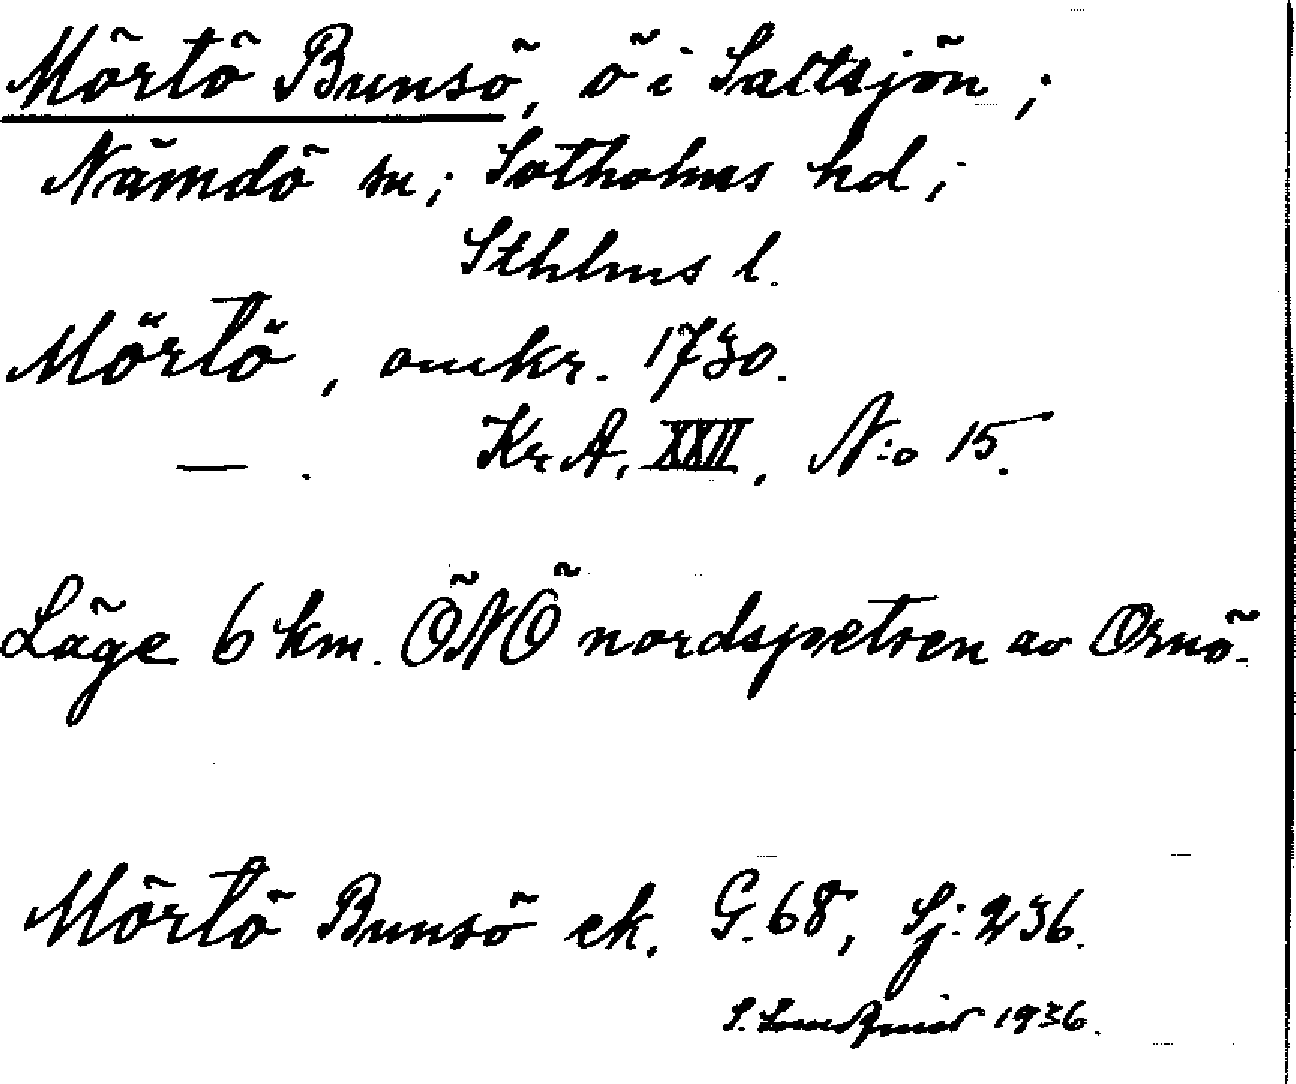 Mörtö Bunsö, ö i Saltsjön;
Nämdö sn; Sotholms hd;
Sthlms l.
Mörtö, omkr. 1730.
— . Kr.A, XXII, N:o 15.
Läge 6 km. ÖNÖ nordspetsen av Ornö.
Mörtö Bunsö ek. G.68, Sj: 236.
S. 1936.